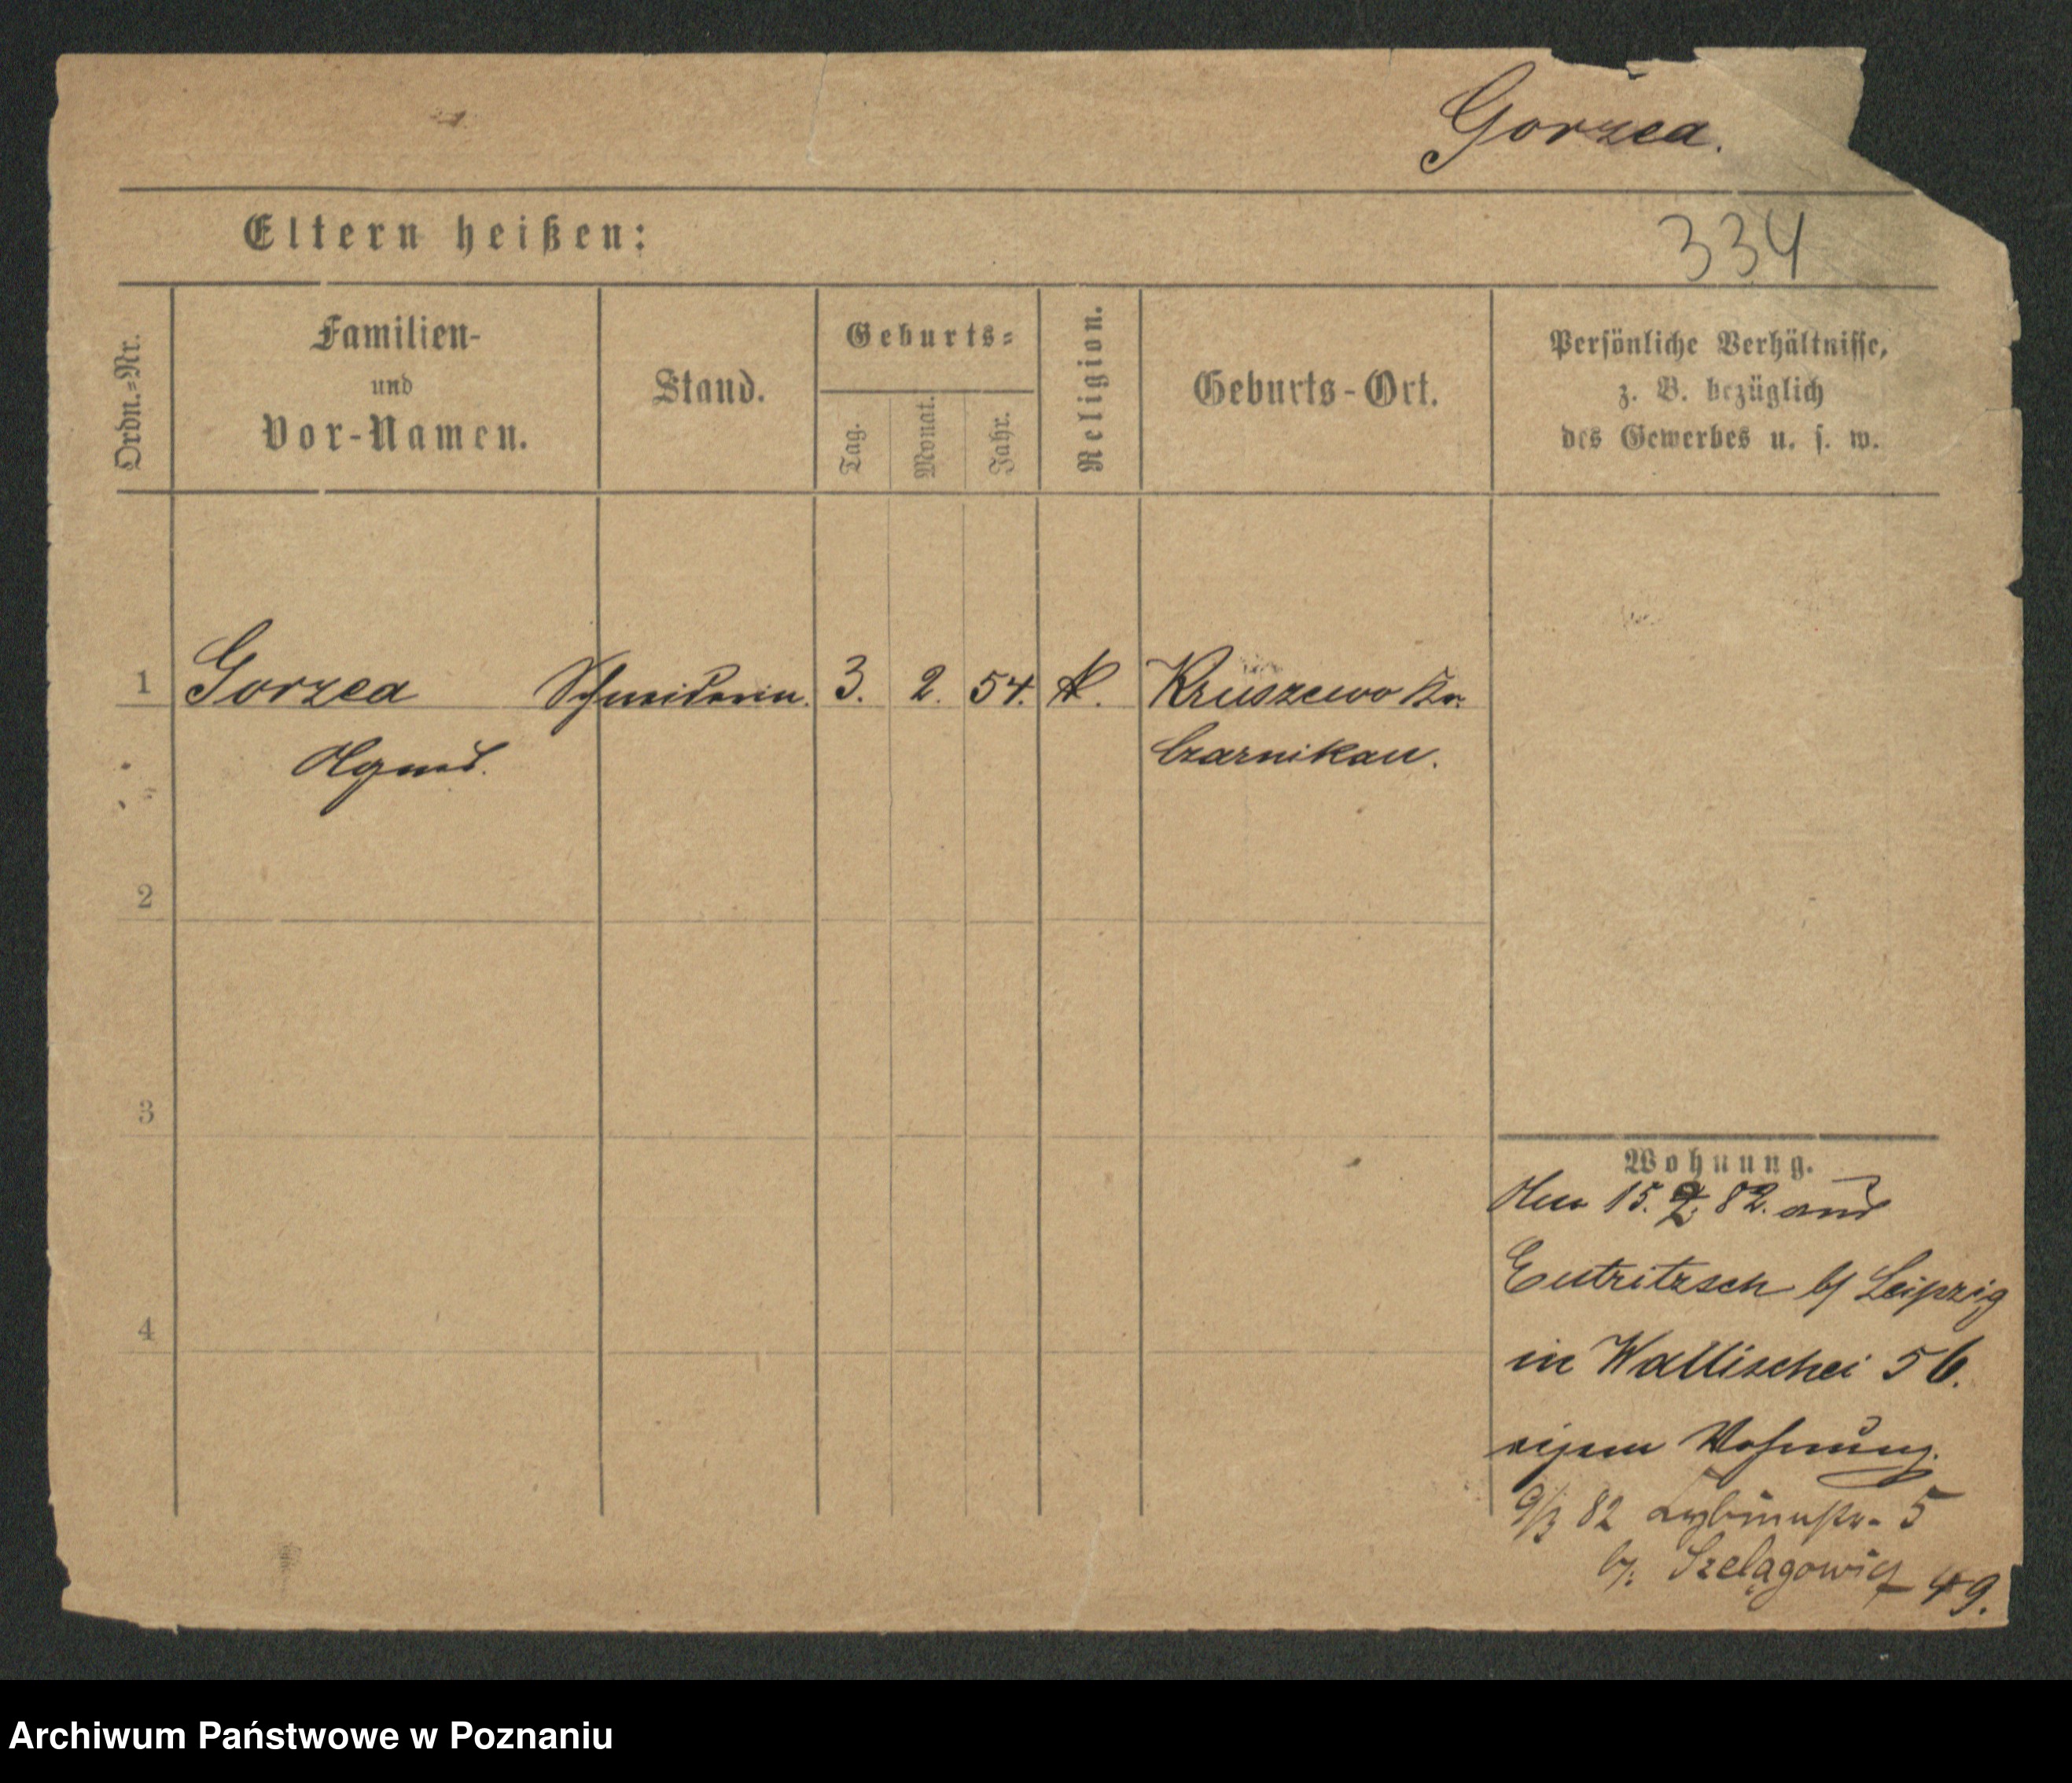 Gorzea.
Eltern heißen:
334
Ordn.=Nr.
Familien-
und
Vor-Namen.
Stand.
Geburts=
Tag.
Monat.
Jahr.
Religion.
Geburts-Ort.
Persönliche Verhältnisse,
z. B. bezüglich
des Gewerbes u. s. w.
1 Gorzea Schneiderin. 3. 2. 54. k. Kruszewo Kr.
Agnes. Czarnikau.
2
3
4
Wohnung.
15. 2. 82. aus
Eutritzsch b/ Leipzig
in Wallischei 56.
eigene Wohnung.
9/3 82 5
b/. Szelągowicz 49.
Archiwum Państwowe w Poznaniu